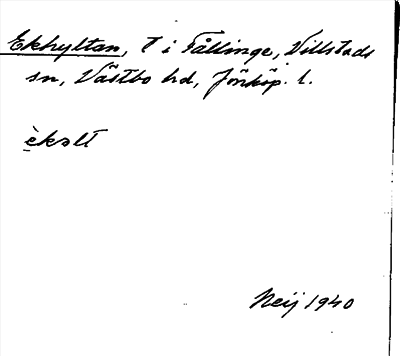 Ekhyltan, T i Fållinge, Villstads
sn, Västbo hd, Jönköp. l.
èkalt
Neij 1940